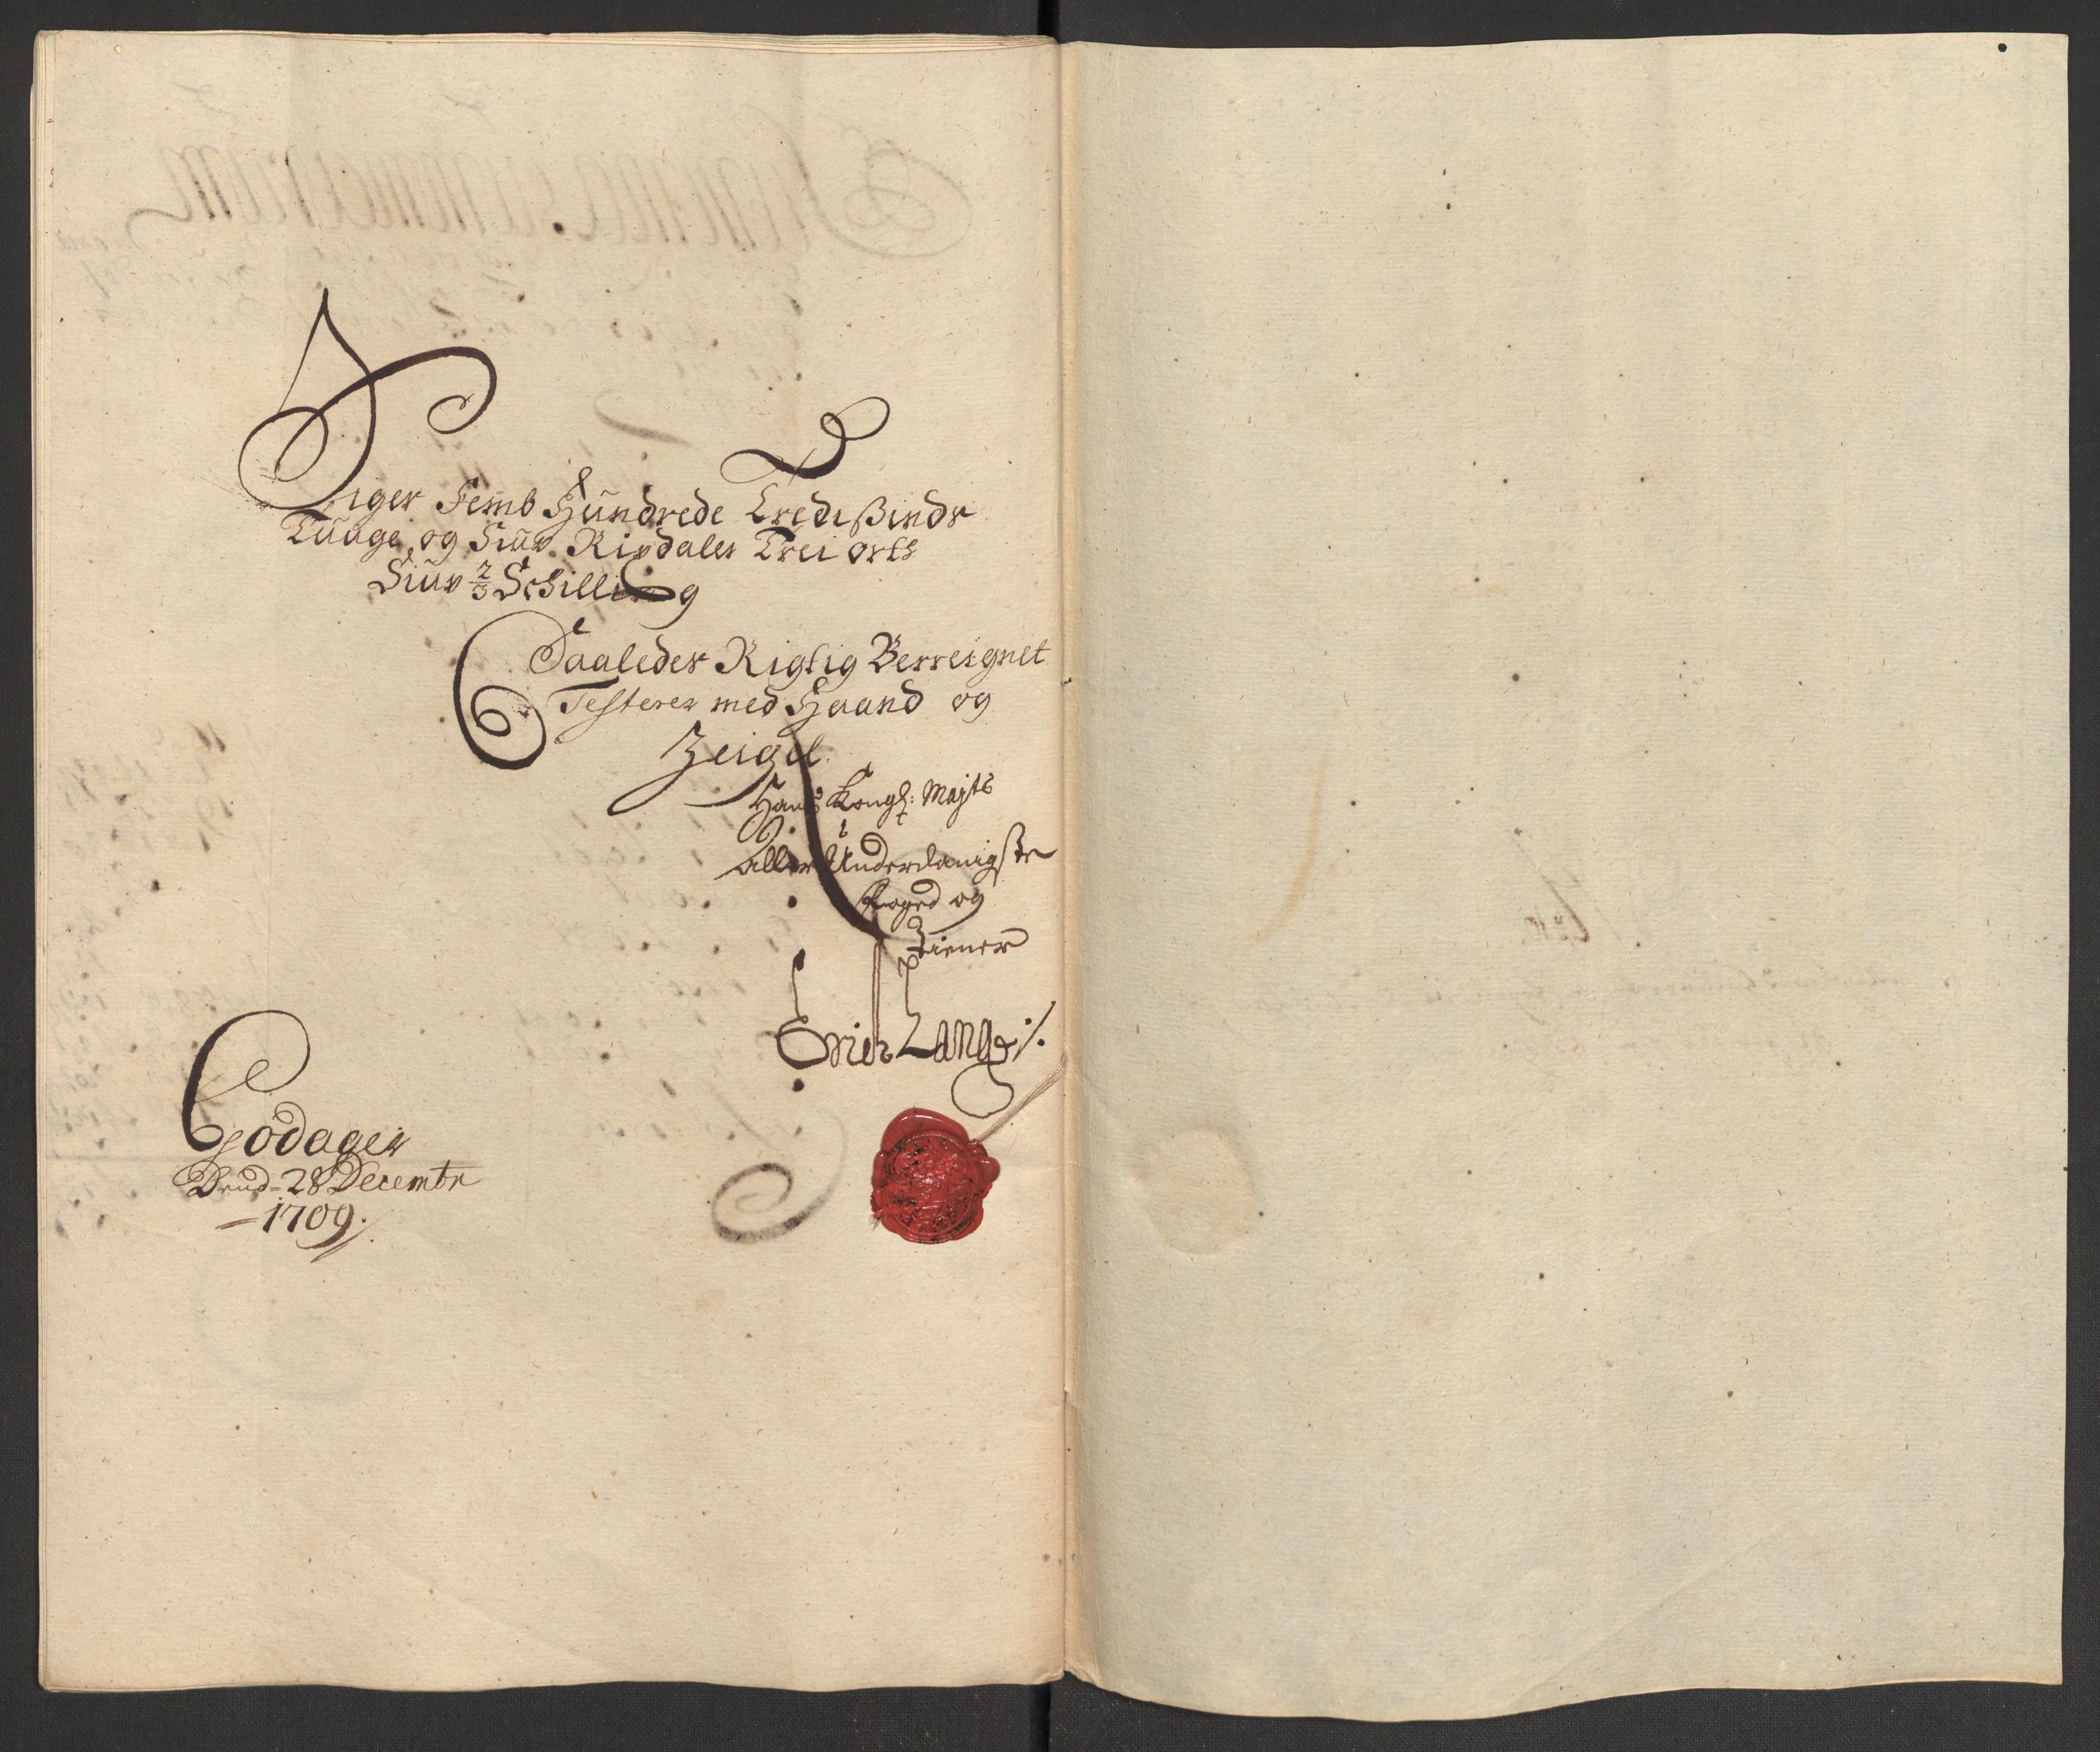 Siger Femb Hundrede Tredisinds
Tuage, og Siuv Rixdaler Trei orts
Siuv 2/3 Schilling
Saaleder Rigtig Berreignet
Testerer med Haand og
Zeigel.
Hans Kongl: Majts
Aller Underdanigste
Foged og
Tiener
Erich Lange ./.
Godager
Dend 28 Decembr
1709.